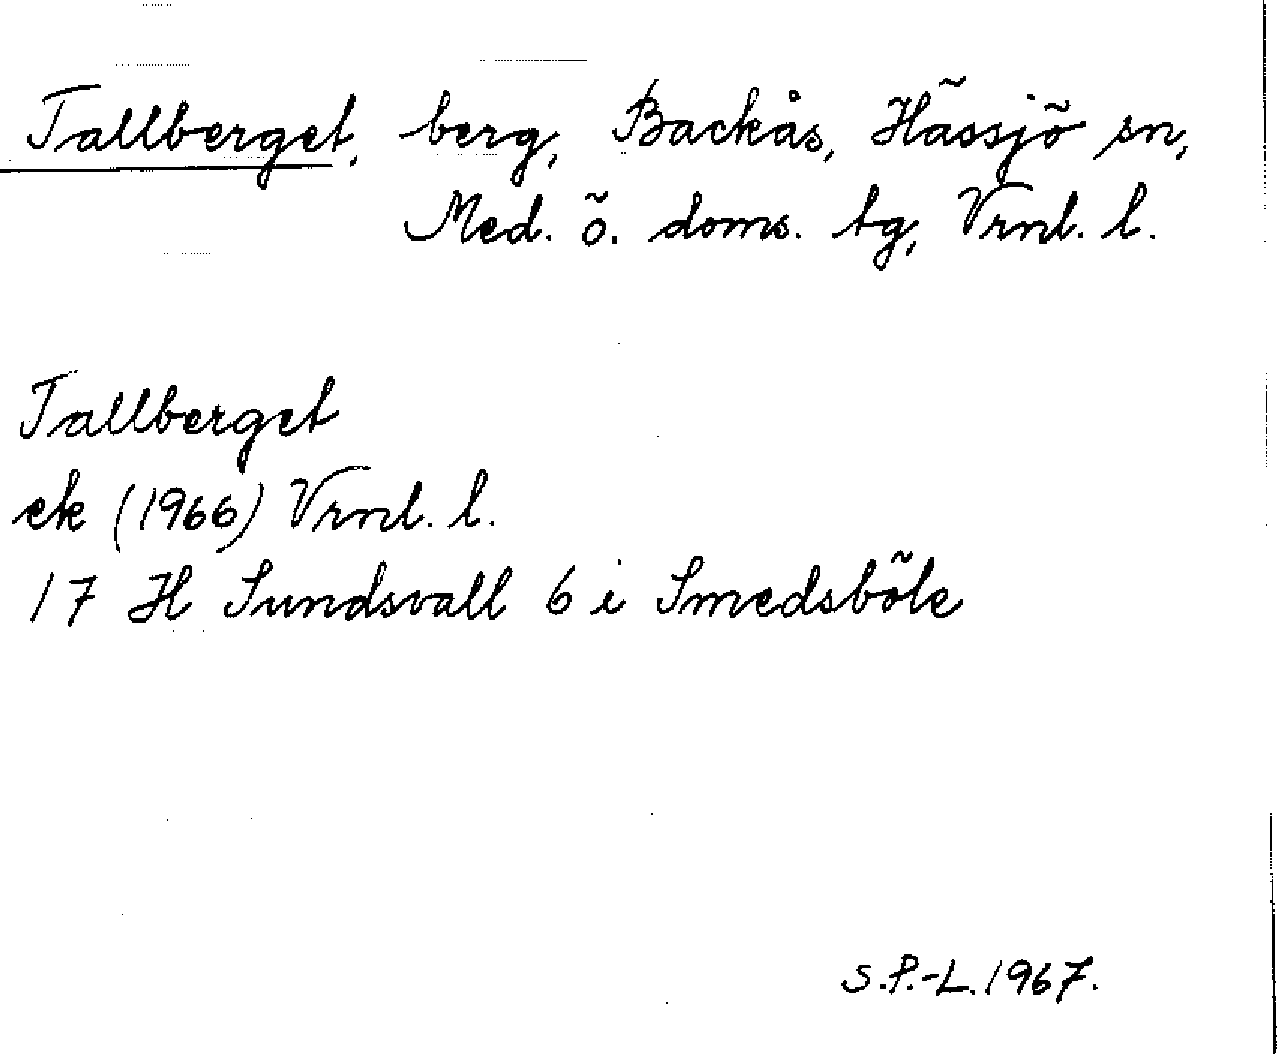 Tallberget, berg, Backås, Hässjö sn,
Med. ö. doms. tg, Vrnl. l.
Tallberget
ek (1966) Vrnl. l.
17 H Sundsvall 6 i Smedsböle
S.P.-L. 1967.